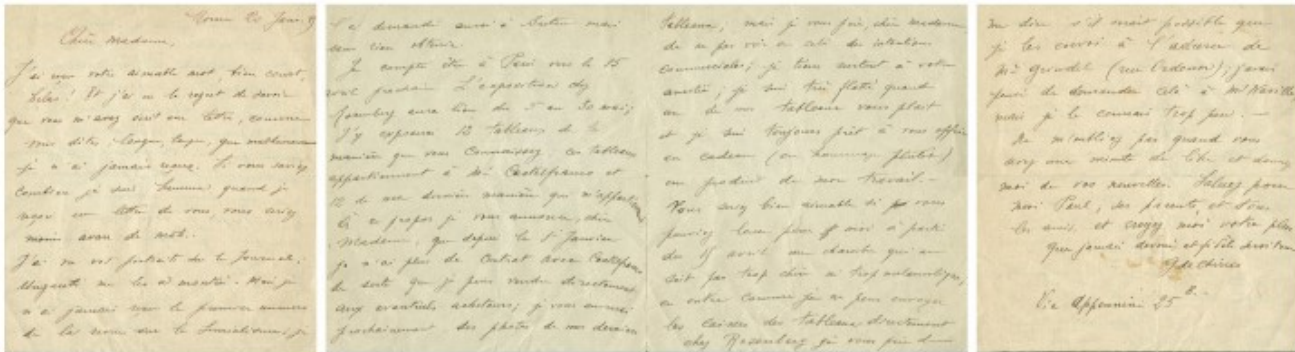 Rome 20 Janv.
Chère madame,
J'ai reçu votre aimable mot, bien court,
hélas! Et j'ai eu le regret de savoir
que vous m'avez écrit une lettre, comme
vous dites: longue, longue, que malheureusement
je n'ai jamais reçue. Si vous saviez
combien je suis heureux quand je
reçois une lettre de vous, vous seriez
moins avare de mots.
J'ai vu vos portraits sur le Journal.
Ungaretti me les a montré. Mais je
n'ai jamais reçu le premier numéro
de la revue sur le Surréalisme; je
l'ai demandé aussi à Breton mais
sans rien obtenir.
Je compte être à Paris vers le 15
avril prochain. L'exposition chez
Rosenberg aura lieu du 5 au 30 mai;
J'y exposerai 13 tableaux de la
manière que vous connaissez, ces tableaux
appartiennent à Mr Castelfranco et
12 de ma dernière manière qui m'appartiennent
à ce propos je vous annonce, chère
Madame, que depuis le 1er Janvier
je n'ai plus de contrat avec Castelfranco
de sorte que je puis vendre directement
aux éventuels acheteurs; je vous enverrai
prochainement des photos de mes derniers
tableaux, mais je vous prie, chère madame,
de ne pas voir en cela des intentions
commerciales; je tiens surtout à votre
amitié; je suis très flatté quand
un de mes tableaux vous plait
et je suis toujours prêt à vous offrir
en cadeau (en hommage plutôt)
un produit de mon travail.-
Vous seriez bien aimable si vous
pouviez louer pour moi à partir
du 15 avril une chambre qui ne
soit pas trop chère ni trop mélancolique,
en outre comme je ne peux envoyer
les caisses des tableaux directement
chez Rosenberg je vous prie de
me dire s'il serait possible que
je les envoie à l'adresse de
Mr Grindel (rue Ordener); j'avais
pensé de demander cela à Mr Naville
mais je le connais trop peu.-
Ne m'oubliez pas quand vous
avez une minute de libre et donnez
moi de vos nouvelles. Saluez pour
moi Paul, ses parents, et tous
les amis, et croyez moi votre plus
que jamais dévoué et fidèle serviteur
G. de Chirico
Via Appennini 25 B.-